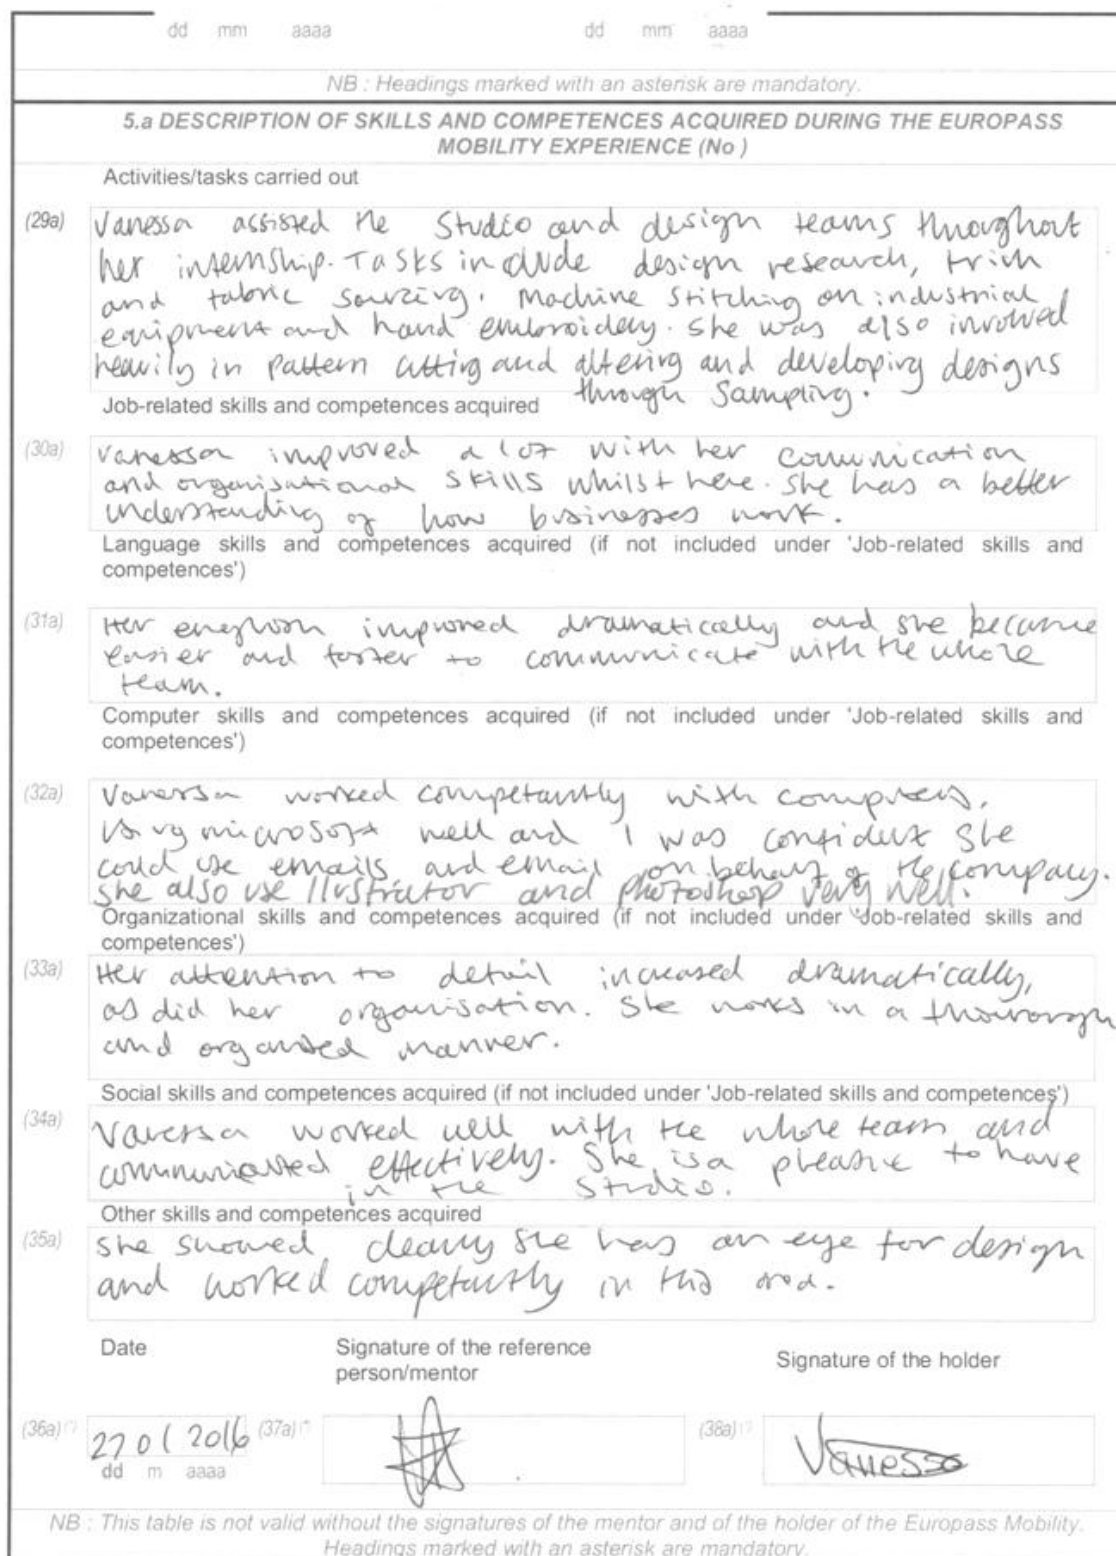 dd mm aaaa dd mm aaaa
NB : Headings marked with an asterisk are mandatory.
5.a DESCRIPTION OF SKILLS AND COMPETENCES ACQUIRED DURING THE EUROPASS
MOBILITY EXPERIENCE (No )
Activities/tasks carried out
(29a) Vanessa assisted the Studio and design teams throughout
her internship. Tasks include design research, trim
and fabric sourcing. Machine stitching on industrial
equipment and hand embroidery. She was also involved
heavily in pattern cutting and altering and developing designs
through Sampling.
Job-related skills and competences acquired
(30a) Vanessa improved a lot with her comunication
and organisational skills whilst here. She has a better
understanding of how businesses work.
Language skills and competences acquired (if not included under 'Job-related skills and
competences')
(31a) Her improved dramatically and she became
easier and faster to communicate with the whole
team.
Computer skills and competences acquired (if not included under 'Job-related skills and
competences')
(32a) Vanessa worked competantly with computers,
using microsoft well and I was confident she
could use emails and email on behalf of the company.
She also use and photoshop very well.
Organizational skills and competences acquired (if not included under 'Job-related skills and
competences')
(33a) Her attention to detail increased dramatically,
as did her organisation. She works in a
and organised manner.
Social skills and competences acquired (if not included under 'Job-related skills and competences')
(34a) Vanessa worked well with the whole team and
communicated effectively. She is a pleasure to have
in the studio.
Other skills and competences acquired
(35a) She showed clearly she has an eye for design
and worked competantly in this area.
Date Signature of the reference Signature of the holder
person/mentor
(36a) (*) 27 01 2016 (37a) (*) (38a) (*) Vanessa
dd m aaaa
NB : This table is not valid without the signatures of the mentor and of the holder of the Europass Mobility.
Headings marked with an asterisk are mandatory.